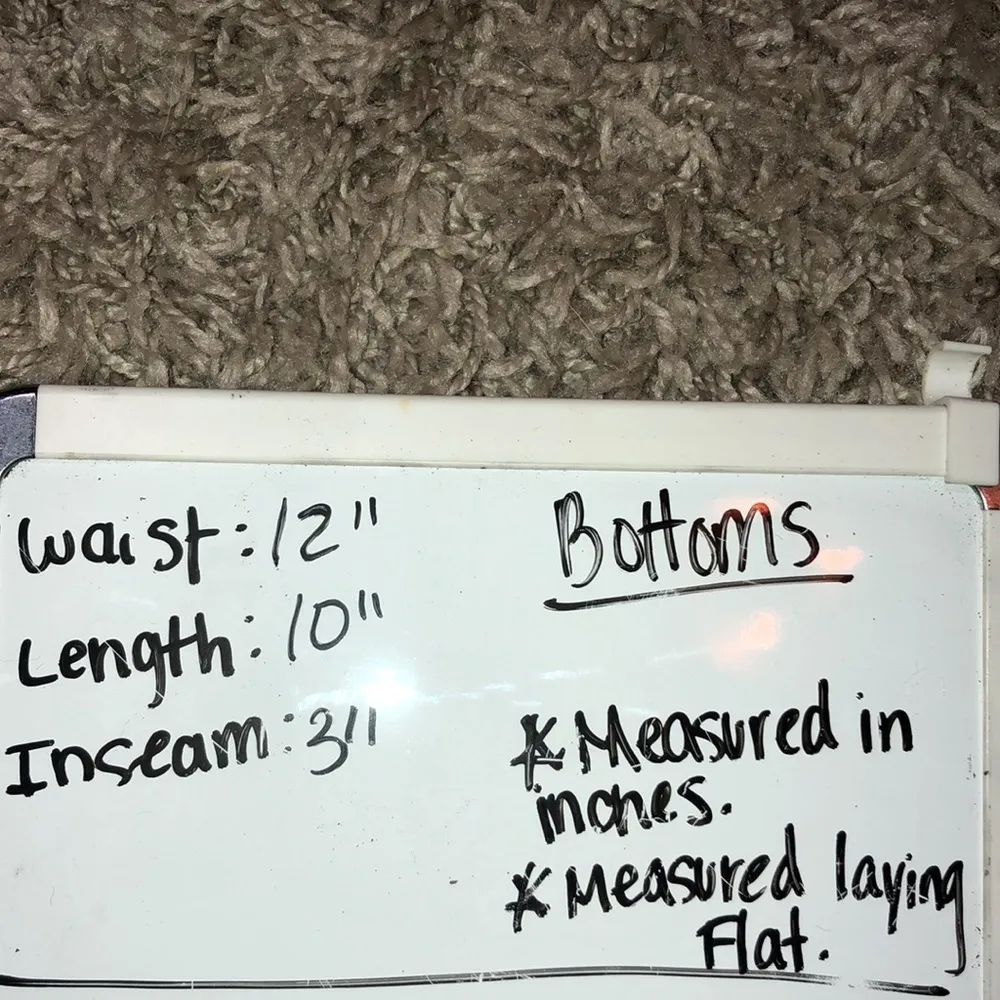 Waist: 12"
Length: 10"
Inseam: 3"
Bottoms
* Measured in
inches.
* Measured laying
Flat.